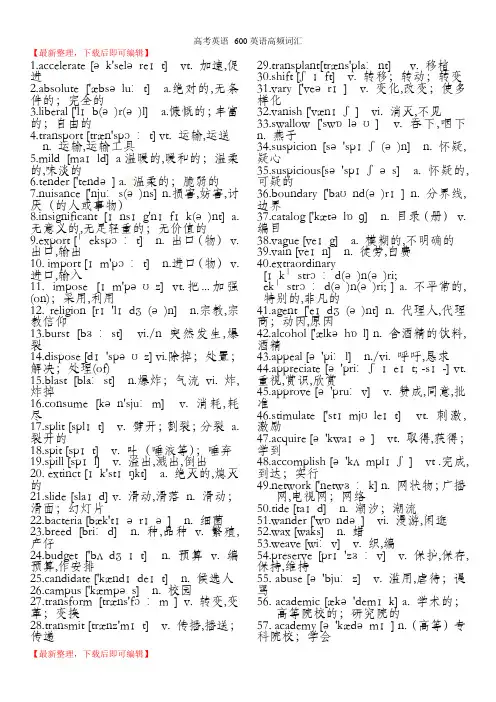 高考英语 600英语高频词汇
【最新整理，下载后即可编辑】
1.accelerate [ə k'seləreɪt] vt. 加速,促
进
2.absolute ['æbsəluːt] a.绝对的,无条
件的；完全的
3.liberal ['lɪb(ə)r(ə)l] a.慷慨的；丰富
的；自由的
4.transport [træn'spɔːt] vt. 运输,运送
n. 运输,运输工具
5.mild [maɪld] a 温暖的,暖和的；温柔
的,味淡的
6.tender ['tendə] a. 温柔的；脆弱的
7.nuisance ['njuːs(ə)ns] n.损害,妨害,讨
厌（的人或事物）
8.insignificant [ɪnsɪg'nɪfɪk(ə)nt] a.
无意义的,无足轻重的；无价值的
9.export [ˈekspɔːt] n. 出口（物） v.
出口,输出
10. import [ɪm'pɔːt] n.进口（物） v.
进口,输入
11. impose [ɪm'pəʊz] vt. 把...加强
(on)；采用,利用
12. religion [rɪ'lɪdʒ(ə)n] n.宗教,宗
教信仰
13.burst [bɜːst] vi./n 突然发生,爆
裂
14.dispose [dɪ'spəʊz] vi.除掉；处置；
解决；处理(of)
15.blast [blɑːst] n.爆炸；气流 vi. 炸,
炸掉
16.consume [kən'sjuːm] v. 消耗,耗
尽
17.split [splɪt] v. 劈开；割裂；分裂 a.
裂开的
18.spit [spɪt] v. 吐（唾液等）；唾弃
19.spill [spɪl] v. 溢出,溅出,倒出
20. extinct [ɪk'stɪŋkt] a. 绝灭的,熄灭
的
21.slide [slaɪd] v. 滑动,滑落 n. 滑动；
滑面；幻灯片
22.bacteria [bæk'tɪərɪə] n. 细菌
23.breed [briːd] n. 种,品种 v. 繁殖,
产仔
24.budget ['bʌdʒɪt] n. 预算 v. 编
预算,作安排
25.candidate ['kændɪdeɪt] n. 候选人
26.campus ['kæmpəs] n. 校园
27.transform [træns'fɔːm] v. 转变,变
革；变换
28.transmit [trænz'mɪt] v. 传播,播送；
传递
29.transplant[træns'plɑːnt] v. 移植
30.shift [ʃɪft] v. 转移；转动；转变
31.vary ['veərɪ] v. 变化,改变；使多
样化
32.vanish ['vænɪʃ] vi. 消灭,不见
33.swallow ['swɒləʊ] v. 吞下,咽下
n. 燕子
34.suspicion [sə'spɪʃ(ə)n] n. 怀疑,
疑心
35.suspicious[sə'spɪʃəs] a. 怀疑的,
可疑的
36.boundary ['baʊnd(ə)rɪ] n. 分界线,
边界
37.catalog ['kætəlɒg] n. 目录（册） v.
编目
38.vague [veɪg] a. 模糊的,不明确的
39.vain [veɪn] n. 徒劳,白费
40.extraordinary
[ɪkˈstrɔːd(ə)n(ə)ri;
ekˈstrɔːd(ə)n(ə)ri; ] a. 不平常的,
特别的,非凡的
41.agent ['eɪdʒ(ə)nt] n. 代理人,代理
商；动因,原因
42.alcohol ['ælkəhɒl] n. 含酒精的饮料,
酒精
43.appeal [ə'piːl] n./vi. 呼吁,恳求
44.appreciate [ə'priːʃɪeɪt; -sɪ-] vt.
重视,赏识,欣赏
45.approve [ə'pruːv] v. 赞成,同意,批
准
46.stimulate ['stɪmjʊleɪt] vt. 刺激,
激励
47.acquire [ə'kwaɪə] vt. 取得,获得；
学到
48.accomplish [ə'kʌmplɪʃ] vt .完成,
到达；实行
49.network ['netwɜːk] n. 网状物；广播
网,电视网；网络
50.tide [taɪd] n. 潮汐；潮流
51.wander ['wɒndə] vi. 漫游,闲逛
52.wax [wæks] n. 蜡
53.weave [wiːv] v. 织,编
54.preserve [prɪ'zɜːv] v. 保护,保存,
保持,维持
55. abuse [ə'bjuːz] v. 滥用,虐待；谩
骂
56. academic [ækə'demɪk] a. 学术的；
高等院校的；研究院的
57. academy [ə'kædəmɪ] n.（高等）专
科院校；学会
【最新整理，下载后即可编辑】